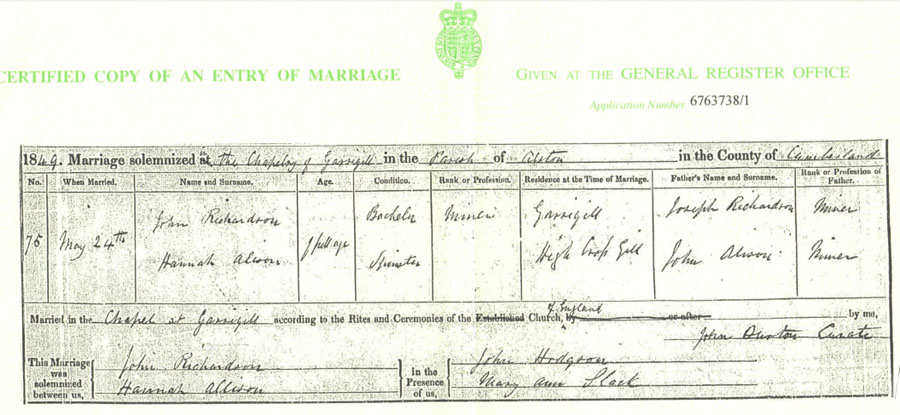 CERTIFIED COPY OF AN ENTRY OF MARRIAGE GIVEN AT THE GENERAL REGISTER OFFICE
Application Number 6763738/1
1849. Marriage solemnized in the Chapelry of Garrigill in the Parish of Alston in the County of Cumberland
No. When Married. Name and Surname. Age. Condition. Rank or Profession. Residence at the Time of Marriage. Father's Name and Surname. Rank or Profession of Father.
75 May 24th John Richardson of full age Bachelor Miner Garrigill Joseph Richardson Miner
Hannah Alison Spinster High Gill John Alison Miner
Married in the Chapel at Garrigill according to the Rites and Ceremonies of the Established Church, of England by or after by me,
John Curate
This Marriage was solemnized between us, John Richardson In the Presence of us, John Hodgson
Hannah Allison Mary Ann Slack